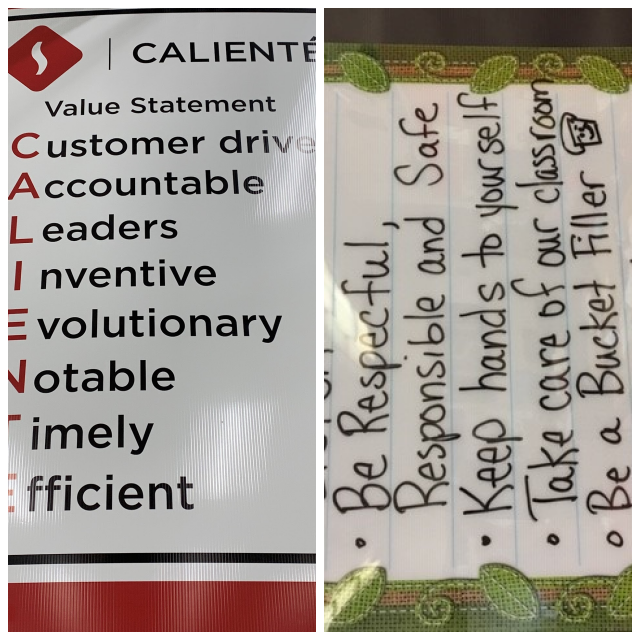 CALIENTÉ
Value Statement
Customer drive
Accountable
Leaders
Inventive
Evolutionary
Notable
Timely
Efficient
• Be Respectful,
Responsible and Safe
• Keep hands to yourself
• Take care of our classroom
• Be a Bucket Filler